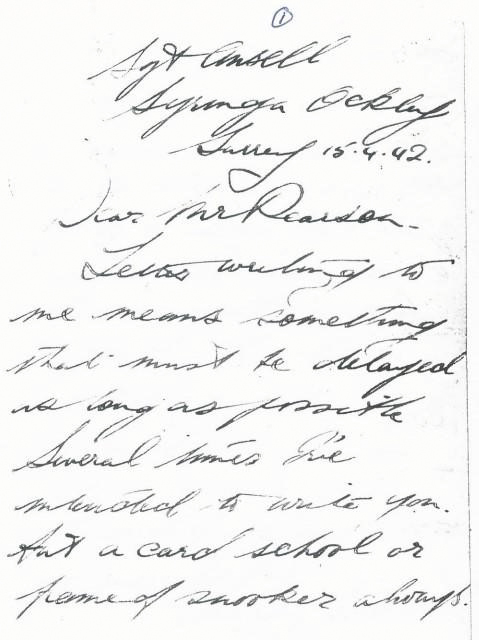 1
Sgt Ansell
Syringa Ockley
Surrey 15.4.42.
Dear Mr Pearson.
Letter writing to
me means something
that must be delayed
as long as possible
Several times I've
intended to write you.
But a card school or
game of snooker always.